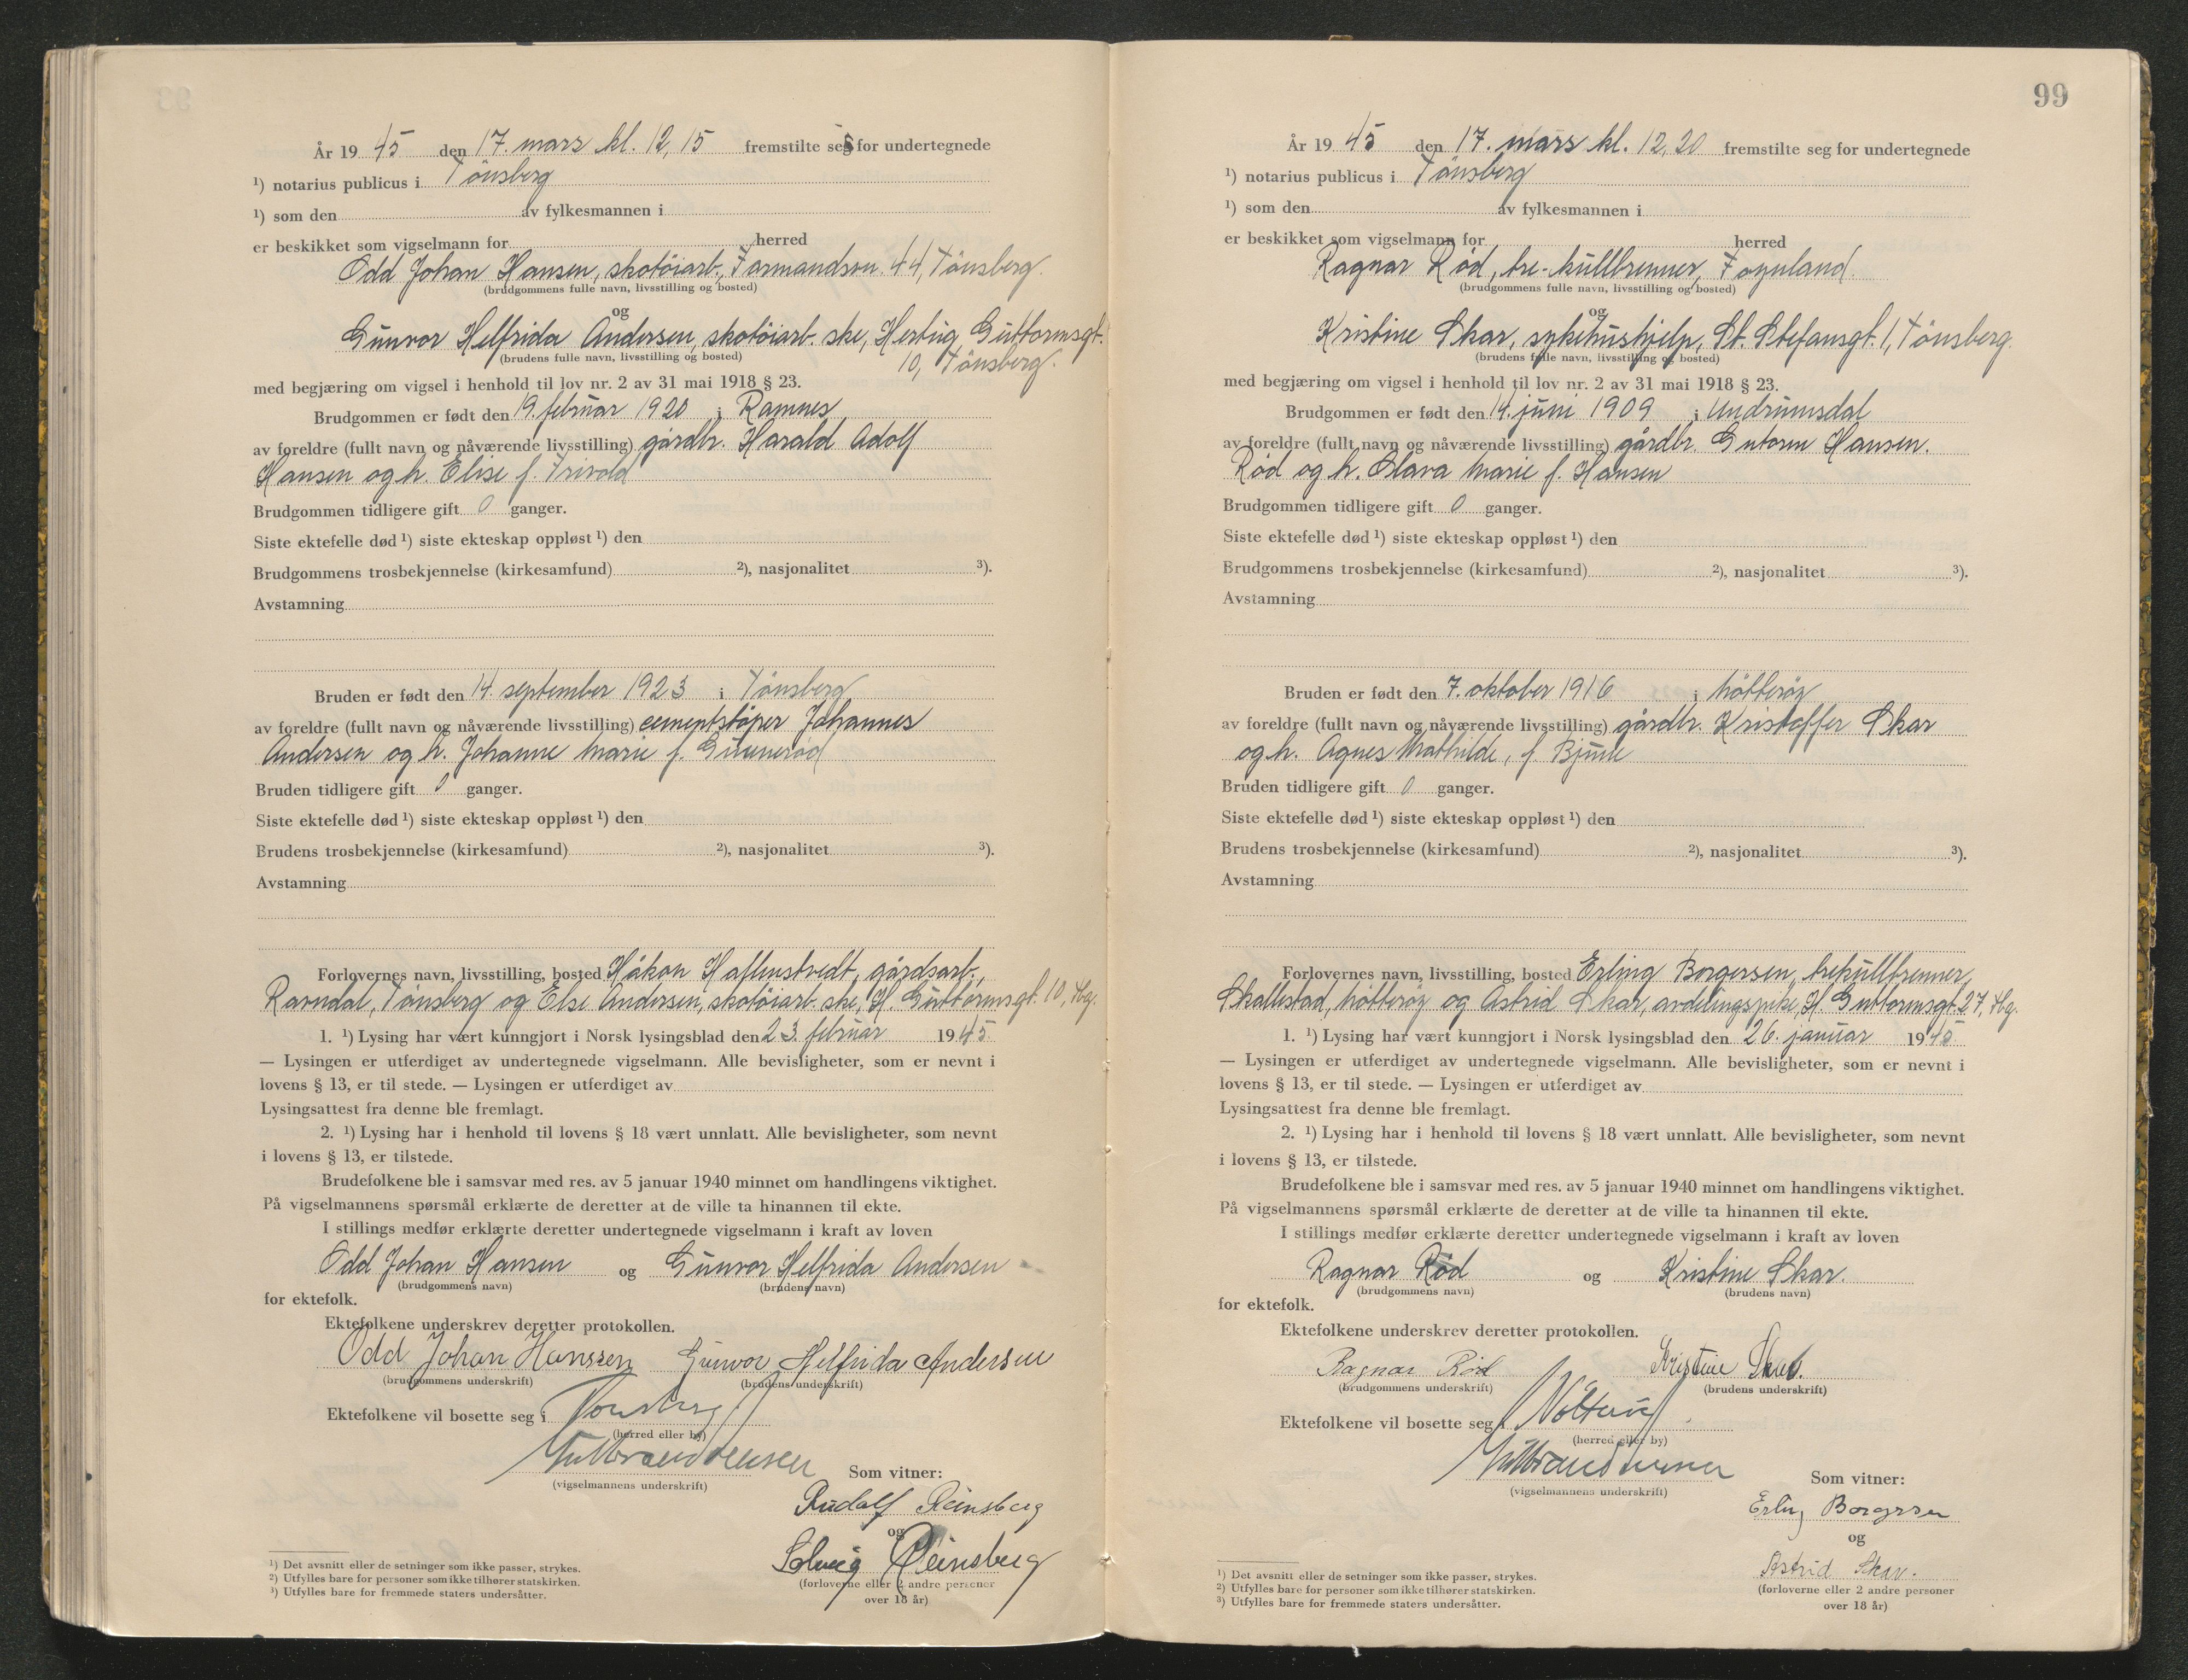 År 19 45 den 17. mars kl. 12,15 fremstilte seg for undertegnede
¹) notarius publicus i Tönsberg
¹) som den av fylkesmannen i
er beskikket som vigselmann for herred
Odd Johan Hansen, skotöiarb., Farmandsv. 44, Tönsberg.
(brudgommens fulle navn, livsstilling og bosted)
og
Gunvor Helfrida Andersen, skotöiarb.ske, Hertug Guttormsgt.
(brudens fulle navn, livsstilling og bosted)
10, Tönsberg.
med begjæring om vigsel i henhold til lov nr. 2 av 31 mai 1918 § 23.
Brudgommen er født den 19. februar 1920 i Ramnes
av foreldre (fullt navn og nåværende livsstilling) gårdbr. Harald Adolf
Hansen og h. Elise f. Trivold
Brudgommen tidligere gift 0 ganger.
Siste ektefelle død ¹) siste ekteskap oppløst ¹) den
Brudgommens trosbekjennelse (kirkesamfund) ²), nasjonalitet ³).
Avstamning
Bruden er født den 14. september 1923 i Tönsberg
av foreldre (fullt navn og nåværende livsstilling) cementstöper Johannes
Andersen og h. Johanne Marie f. Gunneröd
Bruden tidligere gift 0 ganger.
Siste ektefelle død ¹) siste ekteskap oppløst ¹) den
Brudens trosbekjennelse (kirkesamfund) ²), nasjonalitet ³).
Avstamning
Forlovernes navn, livsstilling, bosted Håkon Haflenstvedt, gårdsarb.,
Ravndal, Tönsberg og Else Andersen, skotöiarb.ske, H. Guttormsgt. 10, Tbg.
1. ¹) Lysing har vært kunngjort i Norsk lysingsblad den 23. februar 1945
— Lysingen er utferdiget av undertegnede vigselmann. Alle bevisligheter, som er nevnt i
lovens § 13, er til stede. — Lysingen er utferdiget av
Lysingsattest fra denne ble fremlagt.
2. ¹) Lysing har i henhold til lovens § 18 vært unnlatt. Alle bevisligheter, som nevnt
i lovens § 13, er tilstede.
Brudefolkene ble i samsvar med res. av 5 januar 1940 minnet om handlingens viktighet.
På vigselmannens spørsmål erklærte de deretter at de ville ta hinannen til ekte.
I stillings medfør erklærte deretter undertegnede vigselmann i kraft av loven
Odd Johan Hansen og Gunvor Helfrida Andersen
(brudgommens navn) (brudens navn)
for ektefolk.
Ektefolkene underskrev deretter protokollen.
Odd Johan Hanssen Gunvor Helfrida Andersen
(brudgommens underskrift) (brudens underskrift)
Ektefolkene vil bosette seg i Tönsberg
(herred eller by)
(vigselmannens underskrift)
Som vitner:
Rudolf Reinsberg
og
Solveig Reinsberg
(forloverne eller 2 andre personer
over 18 år)
¹) Det avsnitt eller de setninger som ikke passer, strykes.
²) Utfylles bare for personer som ikke tilhører statskirken.
³) Utfylles bare for fremmede staters undersåtter.
99
År 19 45 den 17. mars kl. 12,20 fremstilte seg for undertegnede
¹) notarius publicus i Tönsberg
¹) som den av fylkesmannen i
er beskikket som vigselmann for herred
Ragnar Röd, tre-kullbrenner, Fognland.
(brudgommens fulle navn, livsstilling og bosted)
og
Kristine Skar, sykehushjelp, St. Stefansgt. 1, Tönsberg.
(brudens fulle navn, livsstilling og bosted)
med begjæring om vigsel i henhold til lov nr. 2 av 31 mai 1918 § 23.
Brudgommen er født den 14. juni 1909 i Undrumsdal
av foreldre (fullt navn og nåværende livsstilling) gårdbr. Gutorm Hansen.
Röd og h. Klara Marie f. Hansen
Brudgommen tidligere gift 0 ganger.
Siste ektefelle død ¹) siste ekteskap oppløst ¹) den
Brudgommens trosbekjennelse (kirkesamfund) ²), nasjonalitet ³).
Avstamning
Bruden er født den 7. oktober 1916 i Nötteröy
av foreldre (fullt navn og nåværende livsstilling) gårdbr. Kristoffer Skar
og h. Agnes Mathilde, f. Bjune
Bruden tidligere gift 0 ganger.
Siste ektefelle død ¹) siste ekteskap oppløst ¹) den
Brudens trosbekjennelse (kirkesamfund) ²), nasjonalitet ³).
Avstamning
Forlovernes navn, livsstilling, bosted Erling Borgersen, trekullbrenner,
Skallestad, Nötteröy og Astrid Skar, avdelingspike, H. Guttormsgt. 27, Tbg.
1. ¹) Lysing har vært kunngjort i Norsk lysingsblad den 26. januar 1945
— Lysingen er utferdiget av undertegnede vigselmann. Alle bevisligheter, som er nevnt i
lovens § 13, er til stede. — Lysingen er utferdiget av
Lysingsattest fra denne ble fremlagt.
2. ¹) Lysing har i henhold til lovens § 18 vært unnlatt. Alle bevisligheter, som nevnt
i lovens § 13, er tilstede.
Brudefolkene ble i samsvar med res. av 5 januar 1940 minnet om handlingens viktighet.
På vigselmannens spørsmål erklærte de deretter at de ville ta hinannen til ekte.
I stillings medfør erklærte deretter undertegnede vigselmann i kraft av loven
Ragnar Röd og Kristine Skar.
(brudgommens navn) (brudens navn)
for ektefolk.
Ektefolkene underskrev deretter protokollen.
Ragnar Röd Kristine Skar.
(brudgommens underskrift) (brudens underskrift)
Ektefolkene vil bosette seg i Nötteröy
(herred eller by)
(vigselmannens underskrift)
Som vitner:
Erling Borgersen
og
Astrid Skar.
(forloverne eller 2 andre personer
over 18 år)
¹) Det avsnitt eller de setninger som ikke passer, strykes.
²) Utfylles bare for personer som ikke tilhører statskirken.
³) Utfylles bare for fremmede staters undersåtter.